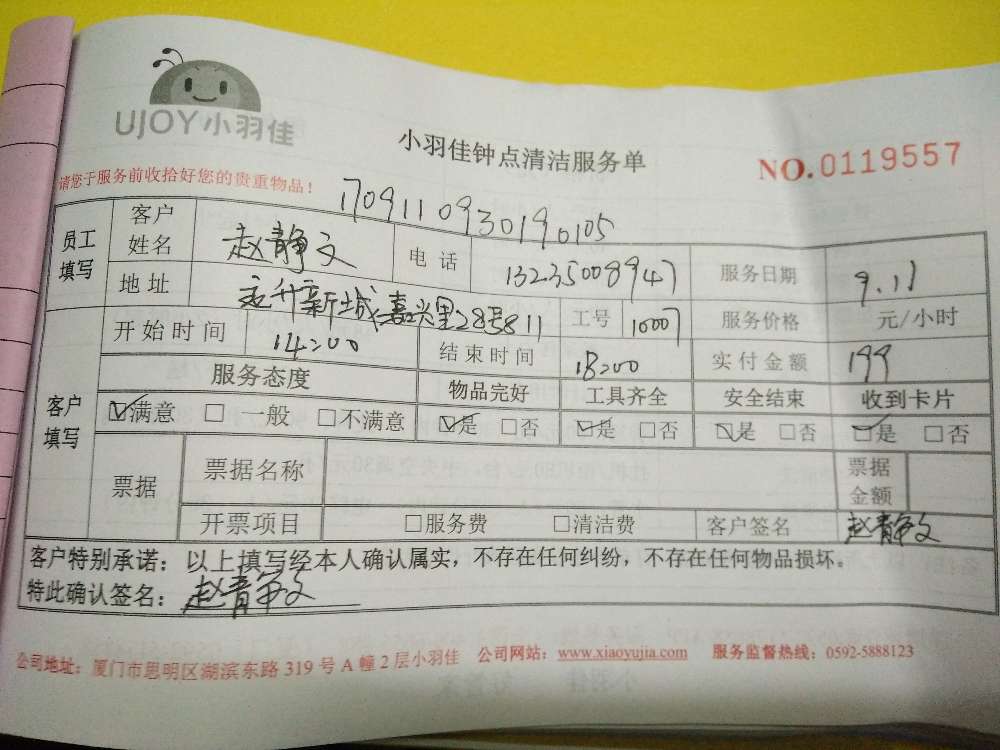 UJOY小羽佳
小羽佳钟点清洁服务单
NO.0119557
请您于服务前收拾好您的贵重物品！
1709110930190105
员工填写 客户姓名 赵静文 电话 13235008947 服务日期 9.11
地址 嘉兴里28号811 工号 10007 服务价格 元/小时
客户填写 开始时间 14:00 结束时间 18:00 实付金额 199
服务态度 物品完好 工具齐全 安全结束 收到卡片
☑满意 □一般 □不满意 ☑是 □否 ☑是 □否 ☑是 □否 ☑是 □否
票据 票据名称 票据金额
开票项目 □服务费 □清洁费 客户签名 赵静文
客户特别承诺：以上填写经本人确认属实，不存在任何纠纷，不存在任何物品损坏。
特此确认签名：赵静文
公司地址：厦门市思明区湖滨东路 319 号 A 幢 2 层小羽佳 公司网站：www.xiaoyujia.com 服务监督热线：0592-5888123